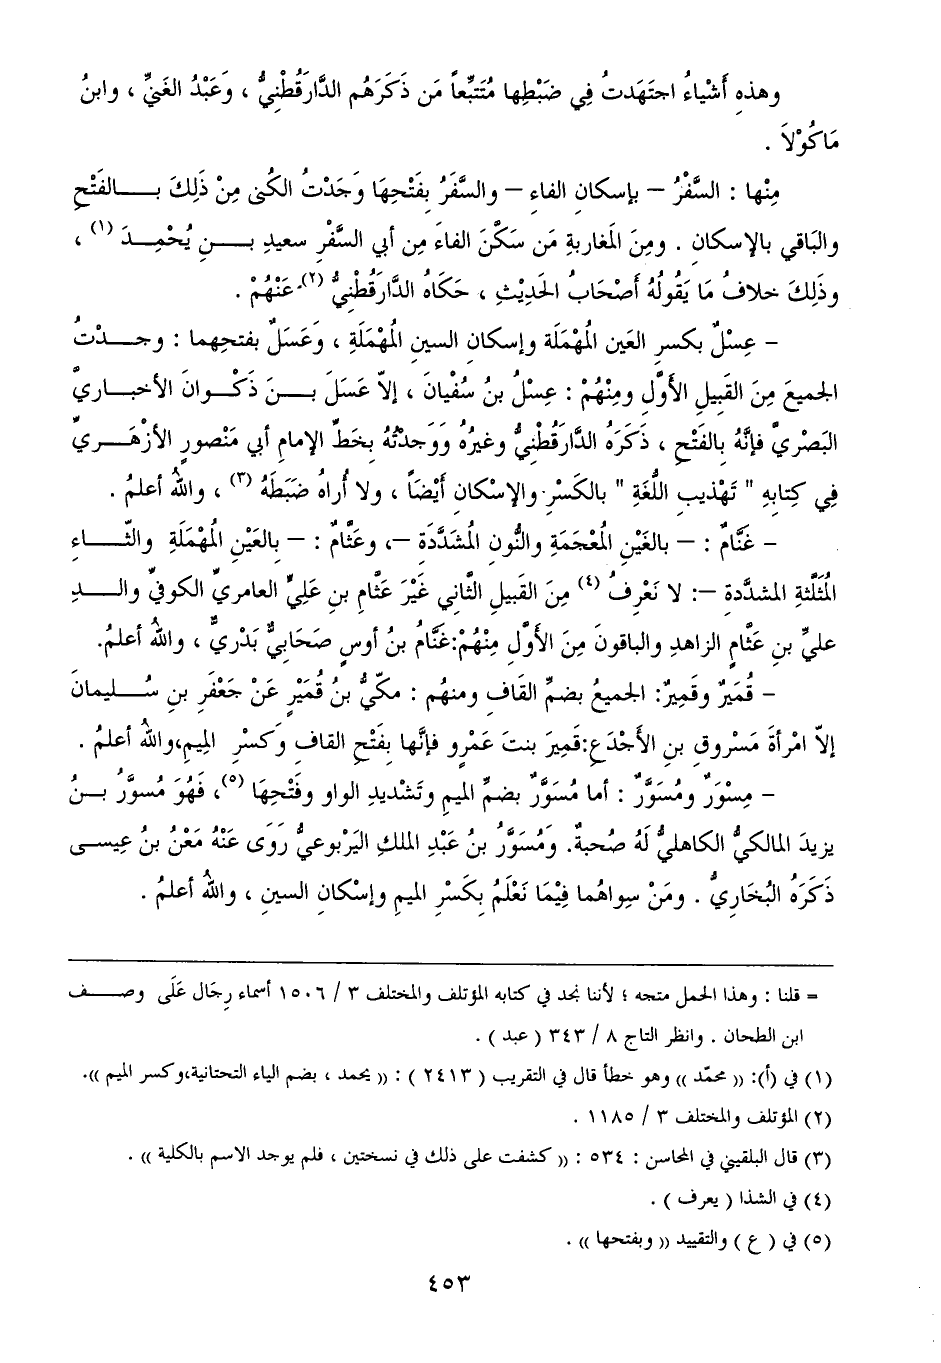 وهذهِ أَشْياءُ اجتَهَدتُ فِي ضَبْطِها مُتَتَبِّعاً مَن ذَكَرَهُم الدَّارَقُطْنِيُّ ، وَعَبْدُ الغَنِيِّ ، وابنُ
مَاكُوْلاَ .
مِنْها : السَّفْرُ – بإسكانِ الفاء – والسَّفَرُ بفَتْحِهَا وَجَدْتُ الكُنى مِنْ ذَلِكَ بـــالفَتْحِ
والبَاقي بالإسكانِ . ومِنَ المَغاربةِ مَن سَكَّنَ الفاءَ مِن أبي السَّفْرِ سعيدِ بـــنِ يُحْمِــدَ (١) ،
وذَلِكَ خلافُ مَا يَقُولُهُ أَصْحَابُ الحَدِيْثِ ، حَكَاهُ الدَّارَقُطْنِيُّ (٢) عَنْهُمْ .
– عِسْلٌ بكسرِ العَينِ المُهْمَلَة وإسكان السينِ المُهْمَلَةِ ، وَعَسَلٌ بفتحِهما : وجـــدْتُ
الجميعَ مِنَ القَبيلِ الأوَّلِ ومِنْهُمْ : عِسْلُ بنُ سُفْيانَ ، إلاّ عَسَلَ بـــنَ ذَكْــوانَ الأخبــاريَّ
البَصْريَّ فإنَّهُ بالفَتْحِ ، ذَكَرَهُ الدَّارَقُطْنِيُّ وغيرُهُ وَوَجدْتُهُ بخَطِّ الإمامِ أبي مَنْصورٍ الأزْهَــريِّ
فِي كِتابِهِ " تَهْذيبِ اللُّغَةِ " بالكَسْرِ والإسْكانِ أيْضَاً ، ولا أُراهُ ضَبَطَهُ (٣) ، واللهُ أعلمُ .
– غَنَّامٌ : – بالغَيْنِ المُعْجَمَةِ والنُّونِ المُشَدَّدَةِ –، وعَثَّامٌ : – بالعَيْنِ المُهْمَلَةِ والثَّـــاءِ
المُثَلَّثةِ المشدَّدة –: لا نَعْرِفُ (٤) مِنَ القَبيلِ الثَّاني غَيْرَ عَثَّامِ بنِ عَلِيٍّ العامريِّ الكوفيِّ والــدِ
عليِّ بنِ عَثَّامٍ الزاهدِ والباقونَ مِنَ الأوَّلِ مِنْهُمْ:غَنَّامُ بنُ أوسٍ صَحَابِيٌّ بَدْرِيٌّ ، واللهُ أعلمُ.
– قُمَيْرٌ وقَمِيرٌ: الجميعُ بضمِّ القَاف ومنهُم : مكّيُّ بنُ قُمَيْرٍ عَنْ جَعْفَرِ بنِ سُـــليمانَ
إلاّ امْرأةَ مَسْروقِ بنِ الأَجْدَعِ:قَمِيرَ بنتَ عَمْرٍو فإنَّها بفَتْحِ القافِ وكَسْرِ الميمِ،واللهُ أعلمُ .
– مِسْوَرٌ ومُسَوَّرٌ : أما مُسَوَّرٌ بضمِّ الميمِ وتَشْديدِ الواوِ وفَتْحِهَا (٥)، فَهُوَ مُسوَّرُ بـــنُ
يزيدَ المالكيُّ الكاهليُّ لَهُ صُحبةٌ. ومُسَوَّرُ بنُ عَبْدِ الملكِ اليَرْبوعيُّ رَوَى عَنْهُ مَعْنُ بنُ عِيسى
ذَكَرَهُ البُخَاريُّ . ومَنْ سِواهُما فِيْمَا نَعْلَمُ بِكَسْرِ الميمِ وإسْكانِ السينِ ، واللهُ أعلمُ .
= قلنا : وهذا الحمل متجه ؛ لأننا نجد في كتابه المؤتلف والمختلف ٣ / ١٥٠٦ أسماء رِجَال عَلَى وصــف
ابن الطحان . وانظر التاج ٨ / ٣٤٣ ( عبد ) .
(١) في (أ): (( محمّد )) وهو خطأ قال في التقريب ( ٢٤١٣ ) : (( يحمد ، بضم الياء التحتانية،وكسر الميم )).
(٢) المؤتلف والمختلف ٣ / ١١٨٥ .
(٣) قال البلقيني في المحاسن : ٥٣٤ : (( كشفت على ذلك في نسختين ، فلم يوجد الاسم بالكلية )) .
(٤) في الشذا ( يعرف ) .
(٥) في ( ع ) والتقييد (( وبفتحها )) .
٤٥٣